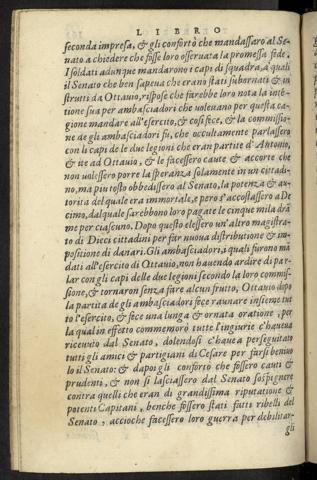 LIBRO
seconda impresa, & gli confortò che mandassaro al Se-
nato a chiedere che fosse loro osseruata la promessa fede.
I soldati adunque mandarono i capi di squadra, a quali
il Senato che ben sapeua che erano stati subornati & in-
strutti da Ottauio, rispose che farebbe loro nota la inten-
tione sua per ambasciadori che uoleuano per questa ca-
gione mandare all'esercito, & così fece, & la commissio-
ne de gli ambasciadori fù, che occultamente parlassero
con li capi de le due legioni che eran partite d'Antonio,
& ite ad Ottauio, & le facessero caute & accorte che
non uolessero porre la speranza solamente in un cittadi-
no, ma piu tosto obbedissero al Senato, la potenza & au-
torita del quale era immortale, e però s'accostassero a De
cimo, dal quale sarebbono loro pagate le cinque mila drã
me per ciascuno. Dopo questo elessero un'altro magistra-
to di Dieci cittadini per far nuoua distributione & im-
positione di danari. Gli ambasciadori, i quali furono mã
dati all'esercito di Ottauio, non hauendo ardire di par-
lar con gli capi delle due legioni secondo la loro commis-
sione, & tornaron senza fare alcun frutto, Ottauio dopo
la partita de gli ambasciadori fece raunare insieme tut
to l'esercito, & fece una lunga & ornata oratione, per
la qual in effetto commemorò tutte l'ingiurie c'haueua
riceuuto dal Senato, dolendosi c'haueua perseguitato
tutti gli amici & partigiani di Cesare per farsi beniuo
lo il Senato: & dapoi gli confortò che fossero cauti &
prudenti, & non si lasciassero dal Senato sospignere
contra quelli che eran di grandissima riputatione &
potenti Capitani, benche fossero stati fatti ribelli del
Senato, accioche facessero loro guerra per debilitar-
gli